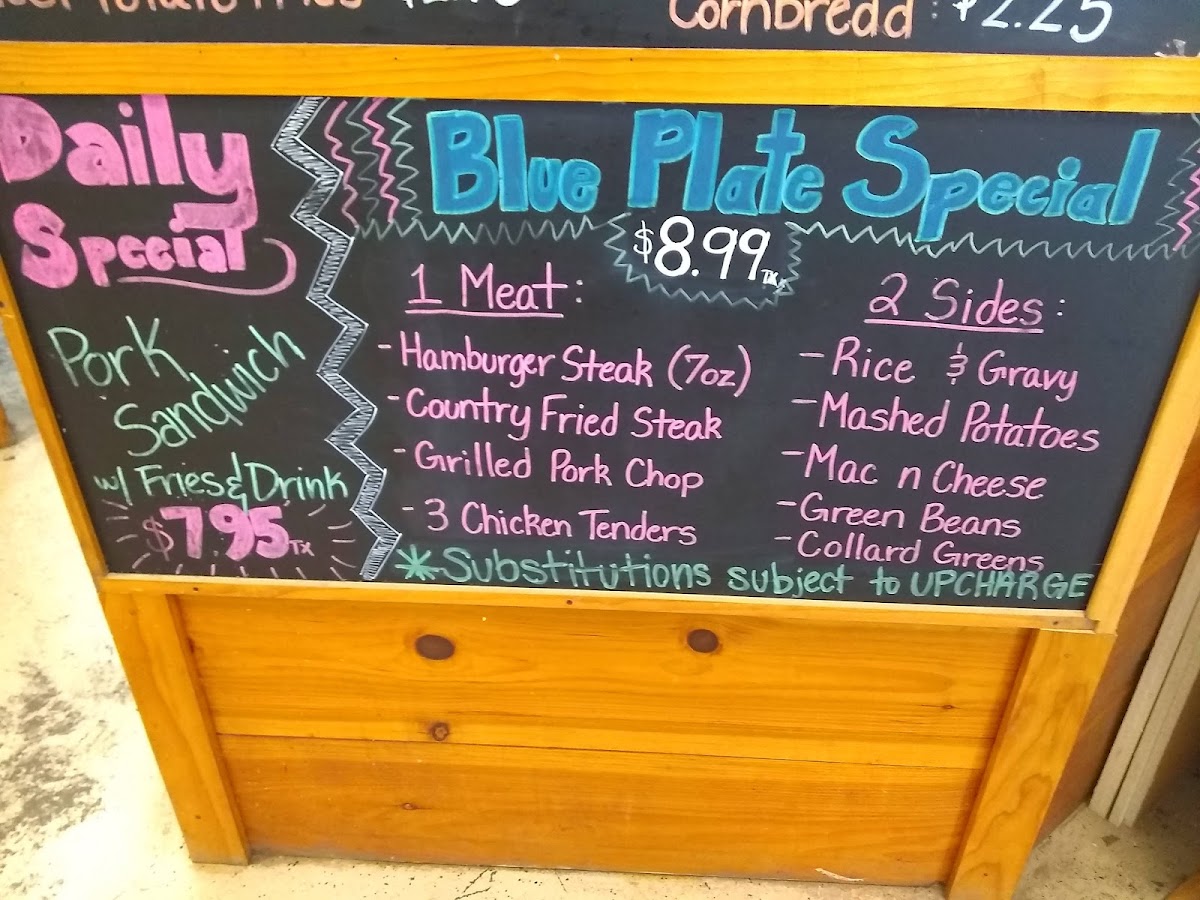 Cornbread : $2.25
Daily
Special
Pork
Sandwich
w/ Fries & Drink
$7.95 TX
Blue Plate Special
$8.99 TX
1 Meat:
- Hamburger Steak (7oz)
- Country Fried Steak
- Grilled Pork Chop
- 3 Chicken Tenders
2 Sides:
- Rice & Gravy
- Mashed Potatoes
- Mac n Cheese
- Green Beans
- Collard Greens
*Substitutions subject to UPCHARGE